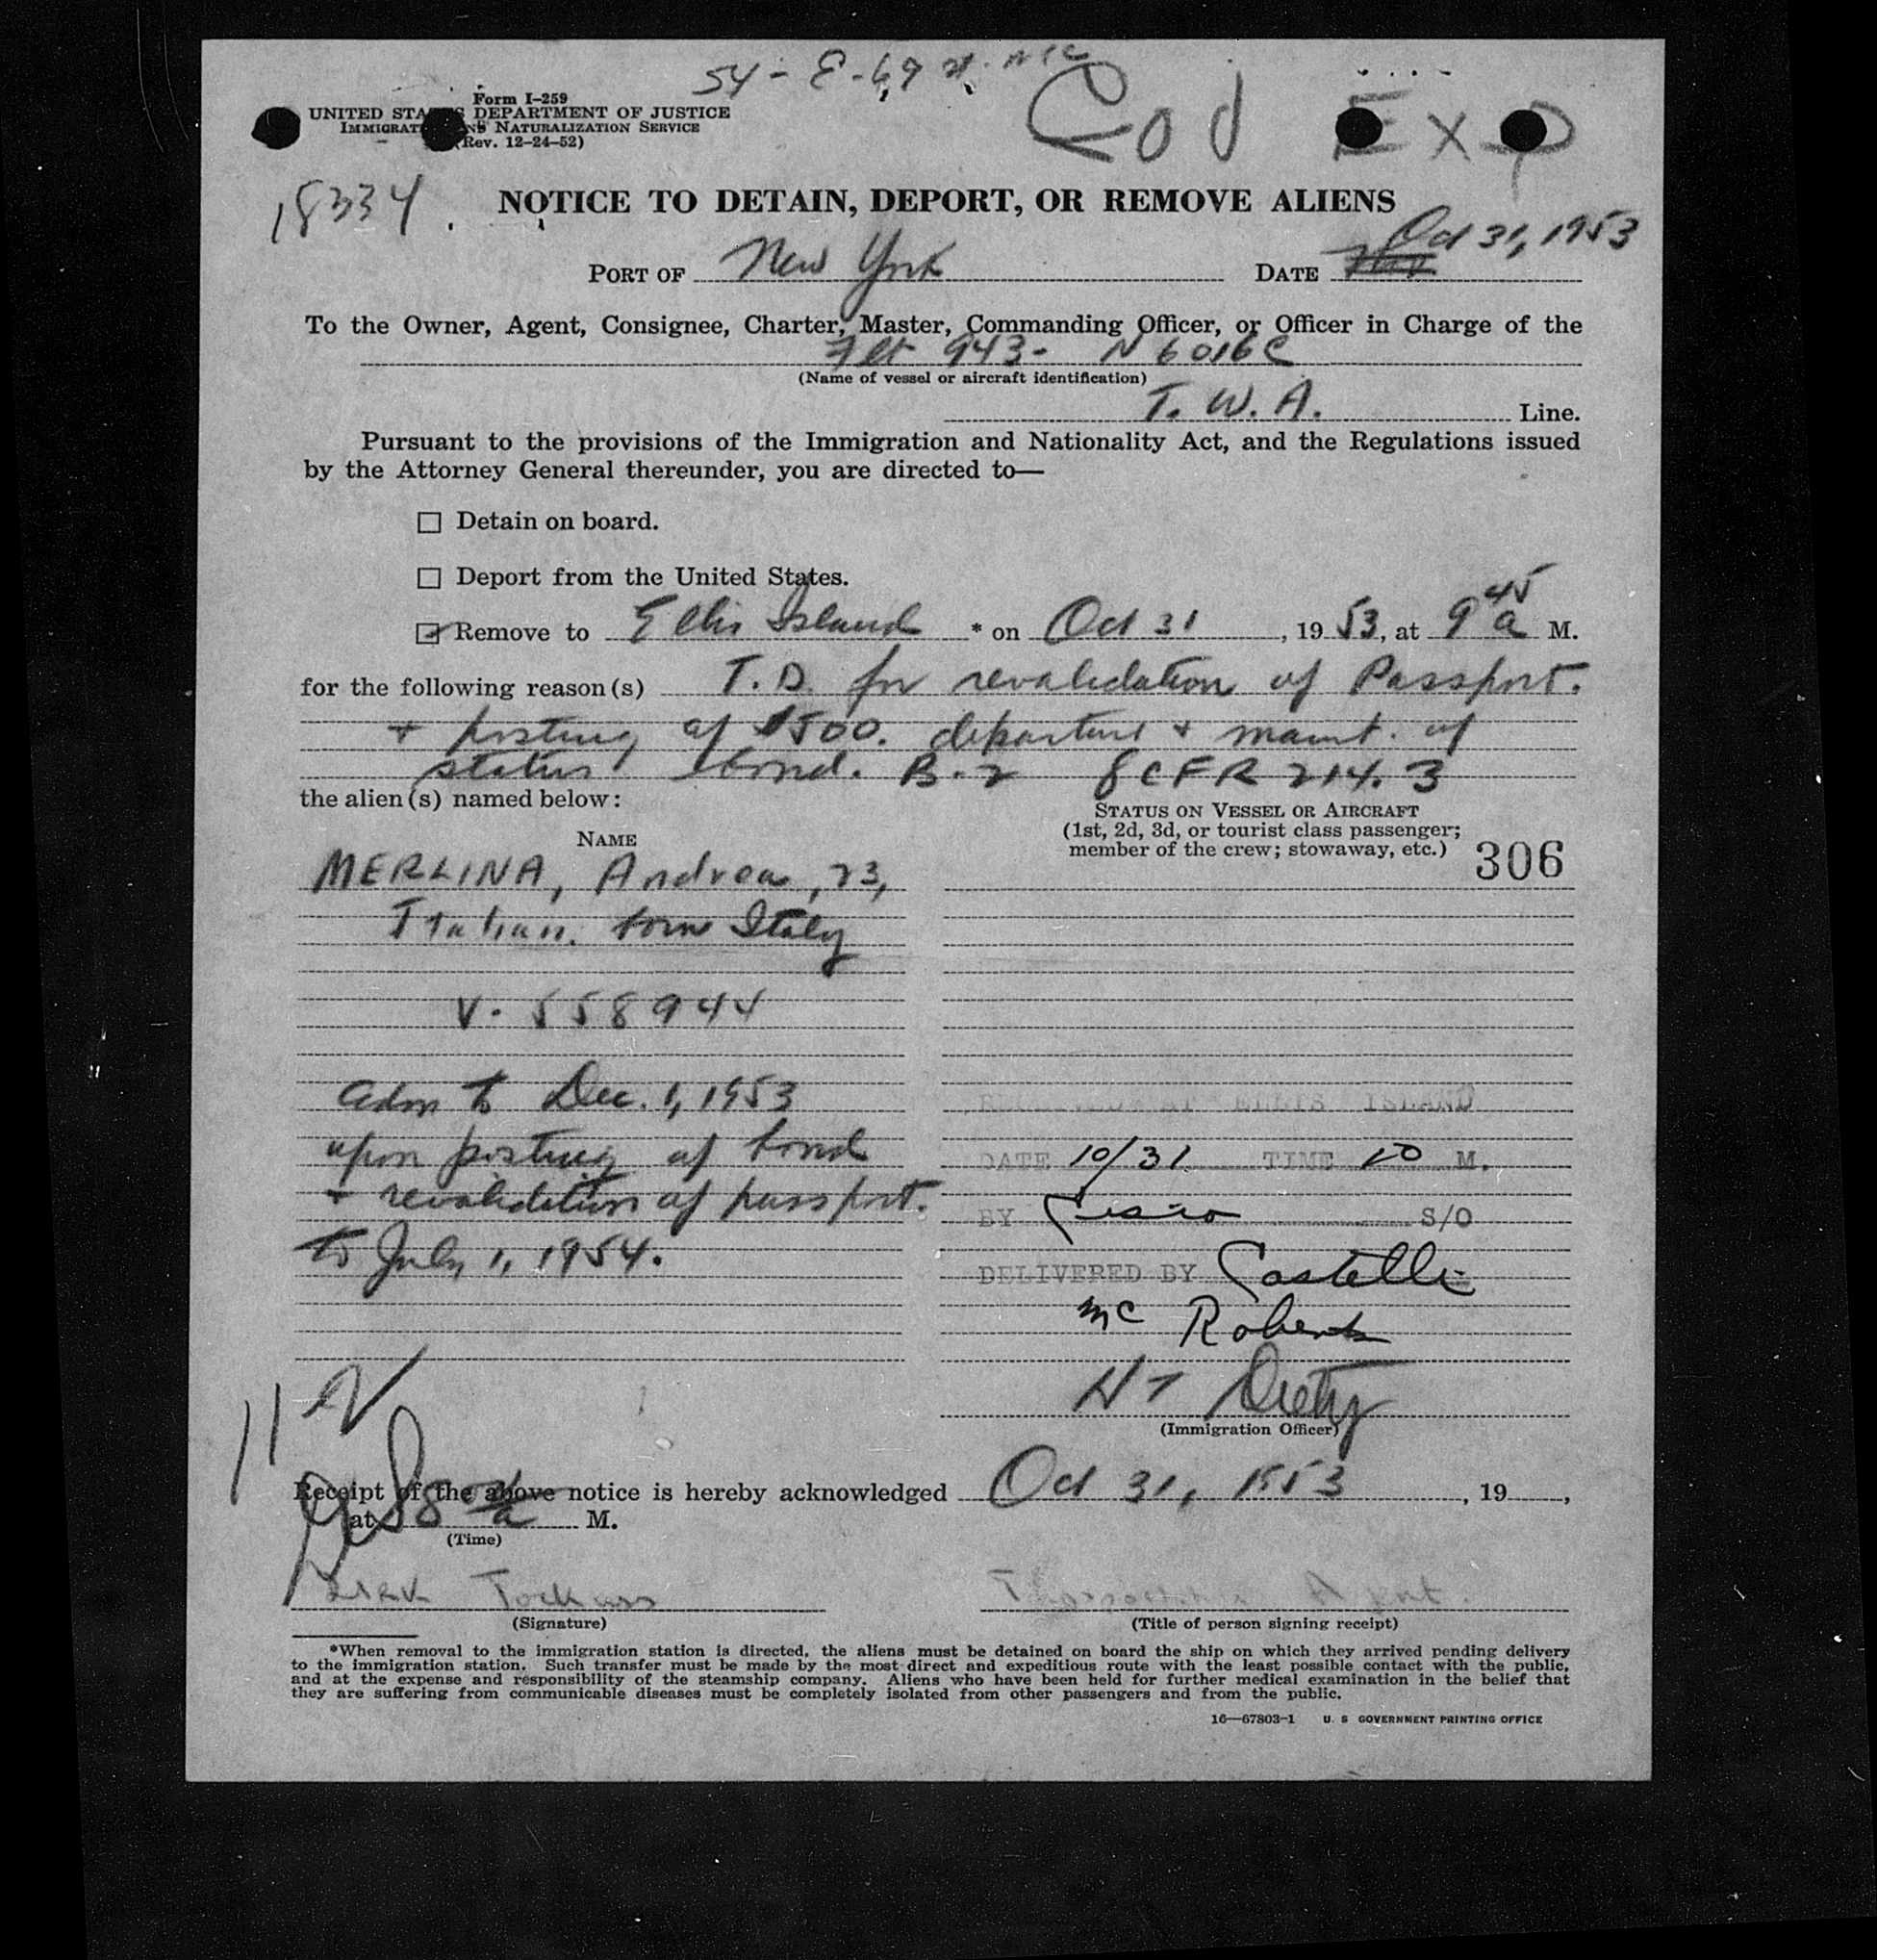 54 - E - 69 st. NYC
Cod Exp
Form I-259
UNITED STATES DEPARTMENT OF JUSTICE
IMMIGRATION AND NATURALIZATION SERVICE
(Rev. 12-24-52)
18334.
NOTICE TO DETAIN, DEPORT, OR REMOVE ALIENS
PORT OF New York DATE Oct 31, 1953
To the Owner, Agent, Consignee, Charter, Master, Commanding Officer, or Officer in Charge of the
Flt 943 - N 6016C
(Name of vessel or aircraft identification)
T. W. A. Line.
Pursuant to the provisions of the Immigration and Nationality Act, and the Regulations issued
by the Attorney General thereunder, you are directed to—
Detain on board.
Deport from the United States.
Remove to Ellis Island * on Oct 31, 1953, at 9 45 a M.
for the following reason(s) T.D. for revalidation of Passport.
+ posting of $500. departure + maint. of
status bond. B-2 8 CFR 214.3
the alien(s) named below:
STATUS ON VESSEL OR AIRCRAFT
(1st, 2d, 3d, or tourist class passenger;
member of the crew; stowaway, etc.)
306
NAME
MERLINA, Andrea, 23,
Italian. born Italy
V. 558944
Adm to Dec. 1, 1953
upon posting of bond
+ revalidation of passport.
to July 1, 1954.
RECEIVED AT ELLIS ISLAND
DATE 10/31 TIME 10 M.
BY S/O
DELIVERED BY Castelli
Mc Roberts
(Immigration Officer)
Receipt of the above notice is hereby acknowledged Oct 31, 1953, 19,
at M.
(Time)
(Signature)
Agent.
(Title of person signing receipt)
*When removal to the immigration station is directed, the aliens must be detained on board the ship on which they arrived pending delivery
to the immigration station. Such transfer must be made by the most direct and expeditious route with the least possible contact with the public,
and at the expense and responsibility of the steamship company. Aliens who have been held for further medical examination in the belief that
they are suffering from communicable diseases must be completely isolated from other passengers and from the public.
16—67803-1 U. S GOVERNMENT PRINTING OFFICE